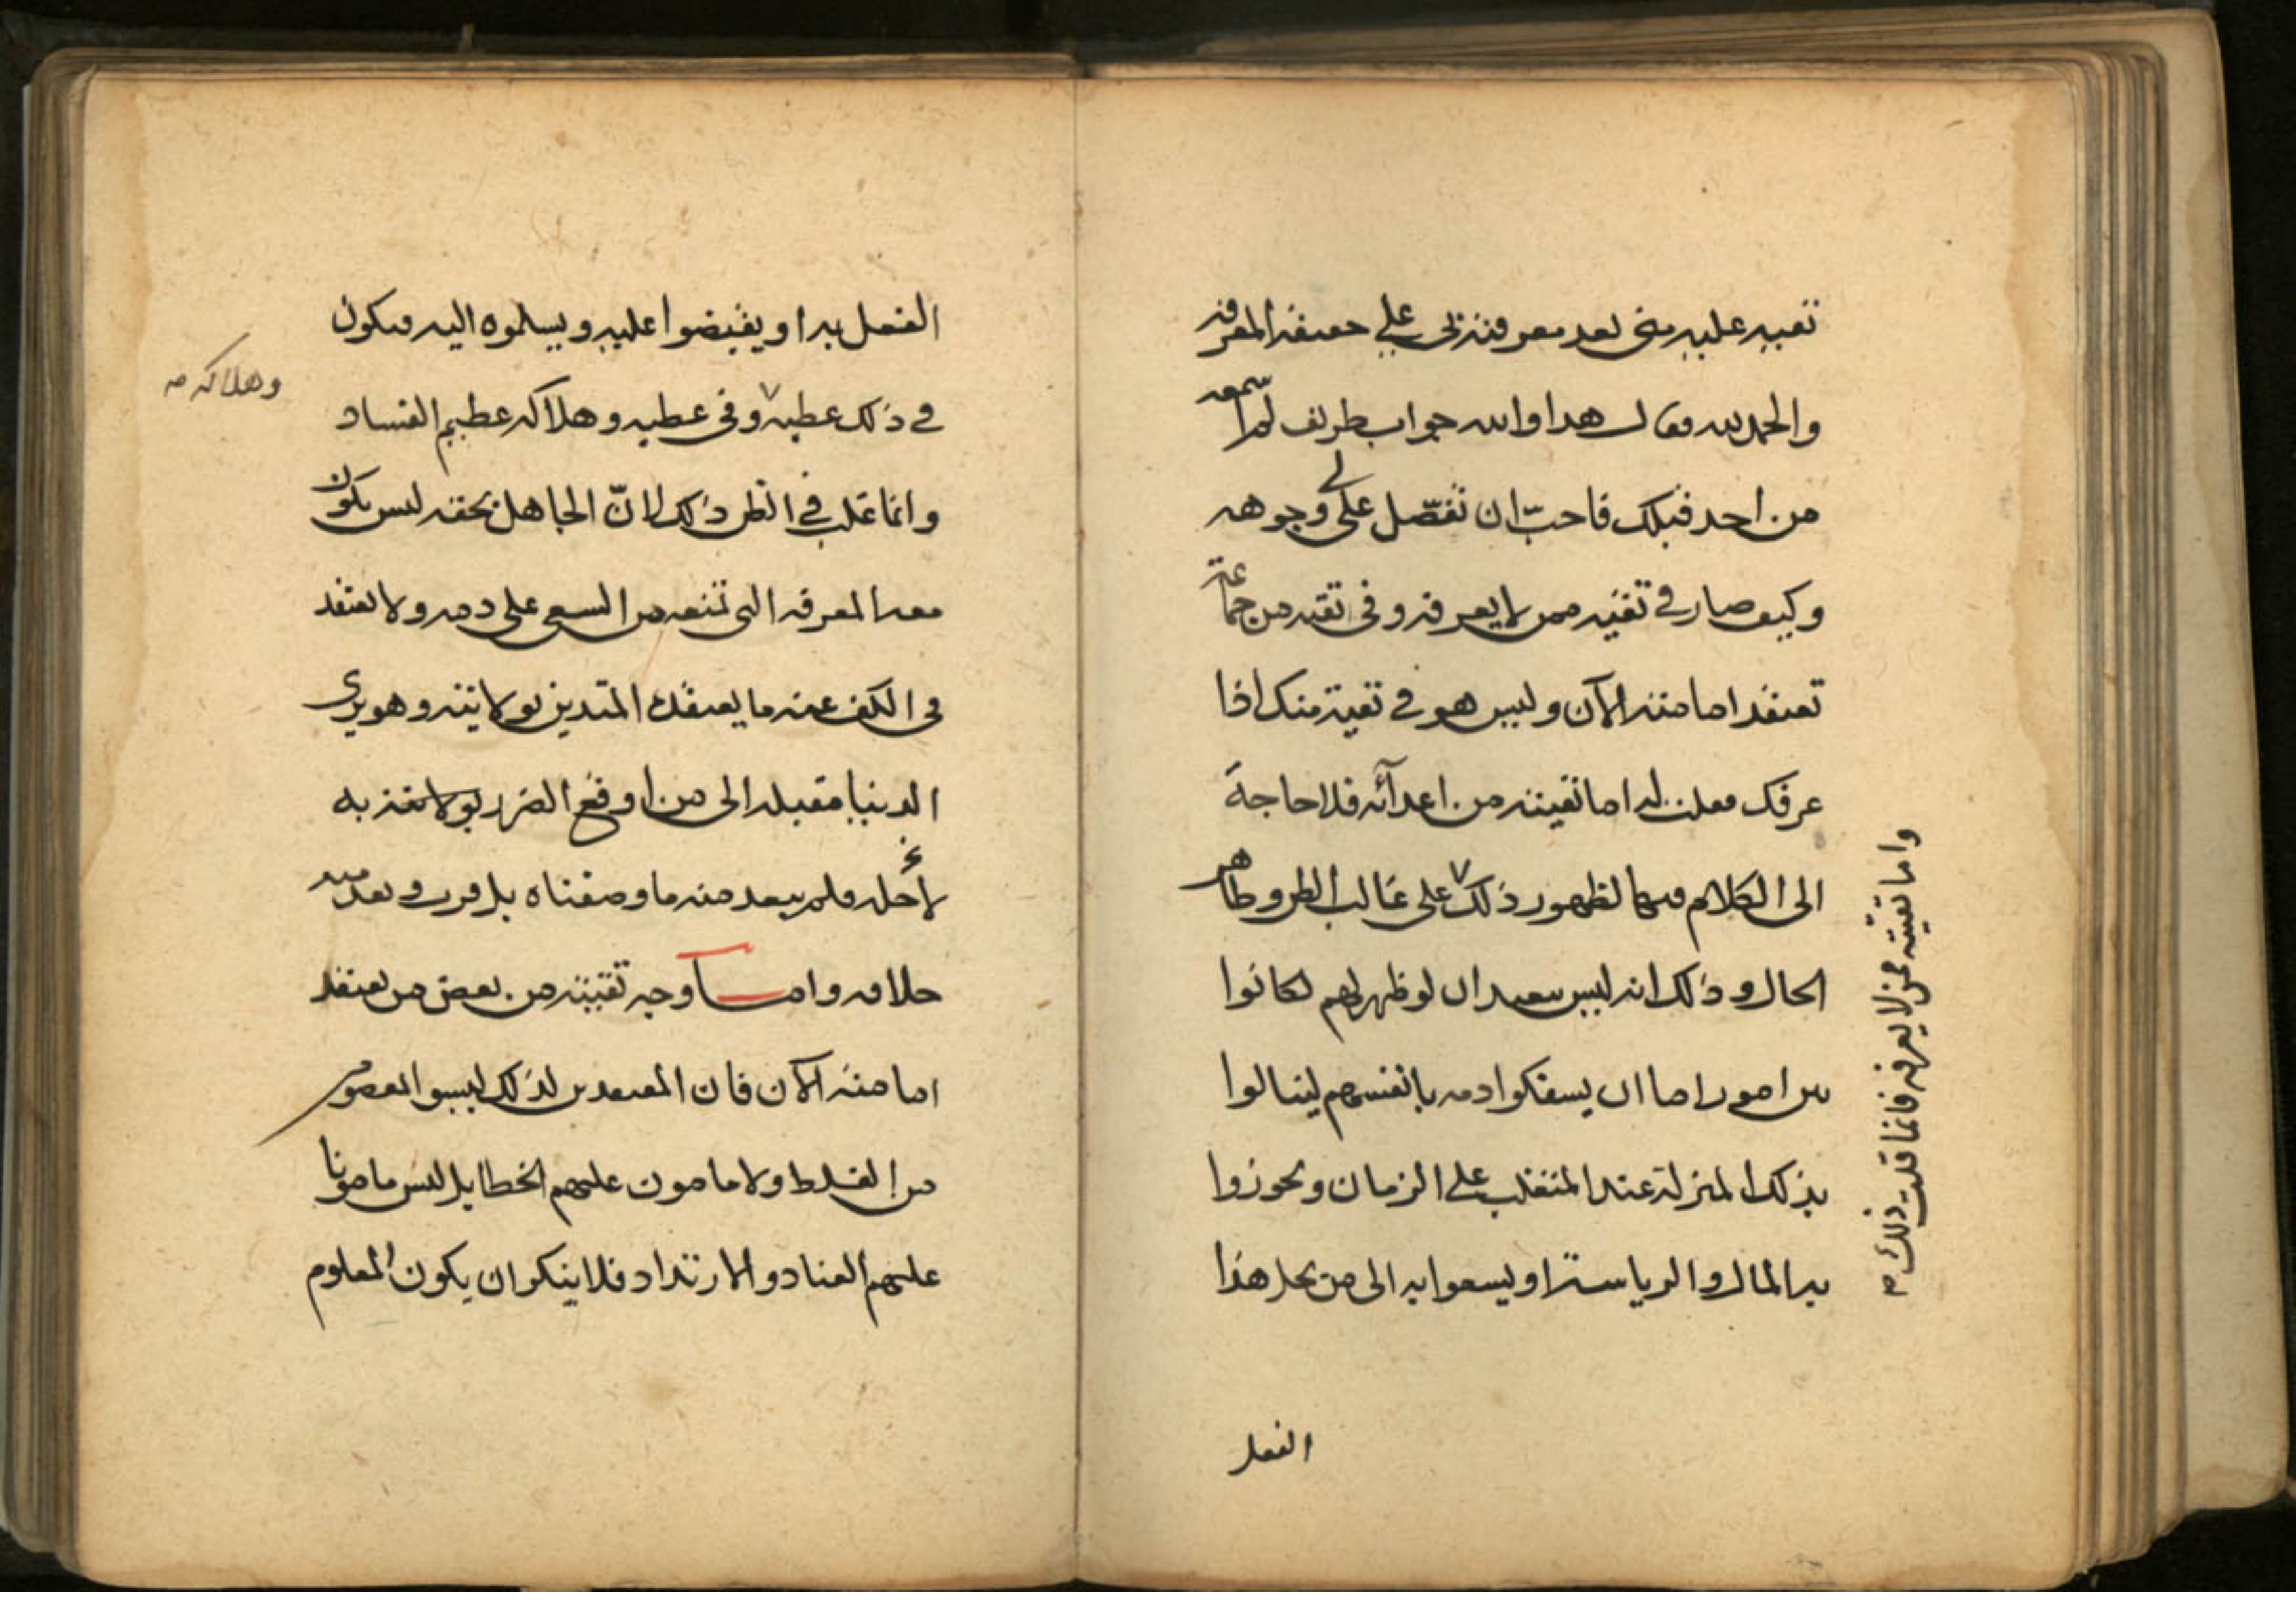 تقيه عليه مني بعد معرفته بي على حقيقة المعرفة
والحمد لله فقال هذا والله جواب طريف لم اسمعه
من احد قبلك فاحب ان تفصل لي على وجوهه
وكيف صار في تقية ممن لا يعرفه وفي تقيه من جماعة
تعتقد امامته الآن وليس هو في تقية منك اذا
عرفك فقلت له اما تقيته من اعدآئه فلا حاجة
الى الكلام فيها لظهور ذلك على غالب الظن وظاهر
الحال وذلك انه ليس ببعيد ان لو ظهر لهم لكانوا
بين امور اما ان يسفكوا دمه بانفسهم لينالوا
بذلك المنزلة عند المتغلب على الزمان ويحوزوا
به المال والرياسة او يسعوا به الى من يحل هذا
الفعل
واما تقيته ممن لا يعرفه فانما قلت ذلك
الفعل به او يقبضوا عليه ويسلموه اليه فيكون
في ذلك عطبه وفي عطبه وهلاكه عظيم الفساد
وهلاكه
وانما غلب في الظن ذلك لانّ الجاهل بحقه ليس يكون
معه المعرفه التي تمنعه من السعي على دمه ولا يعتقد
في الكف عنه ما يعتقده المتدين بولايته وهو يرى
الدنيا مقبله الى من اوقع الضرر بولا
لأجله فلم يبعد منه ما وصفناه بل قرب وبعد منه
خلافه واما وجه تقيته من بعض من يعتقد
امامته الآن فان المعتقدين لذلك ليسوا بمعصومين
من الغلط ولا مامون عليهم الخطا بل ليس مامونا
عليهم العناد والارتداد فلا ينكر ان يكون المعلوم